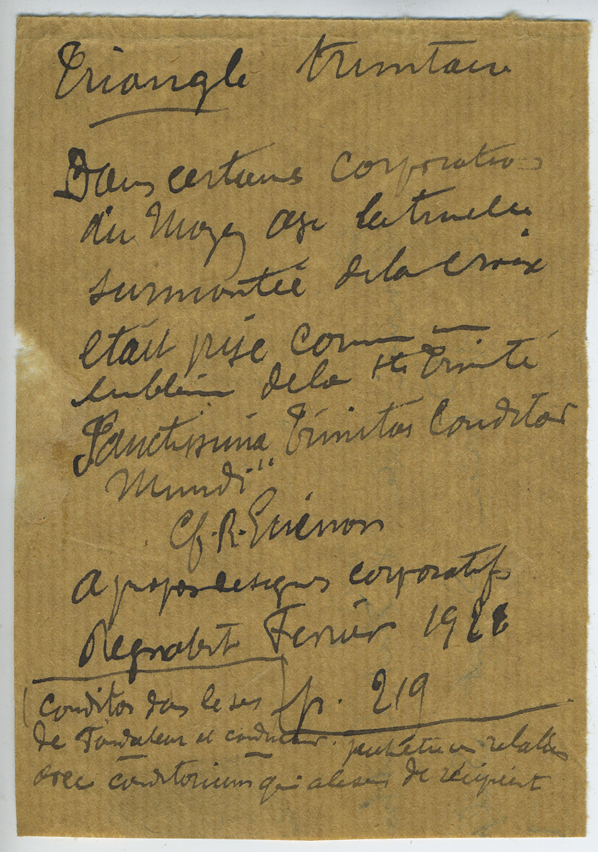 Triangle trinitaire
Dans certaines corporations
du Moyen age la truelle
surmontée de la croix
était prise comme un
emblème de la Ste Trinité
Sanctissima Trinitas Conditor
Mundi"
Cf. R. Guénon
A propos des signes corporatifs
Regnabit Fevrier 1926
p. 219
(Conditor dans le sens
de Fondateur et conducteur. peut être en relation
avec conditorium qui a le sens de récipient